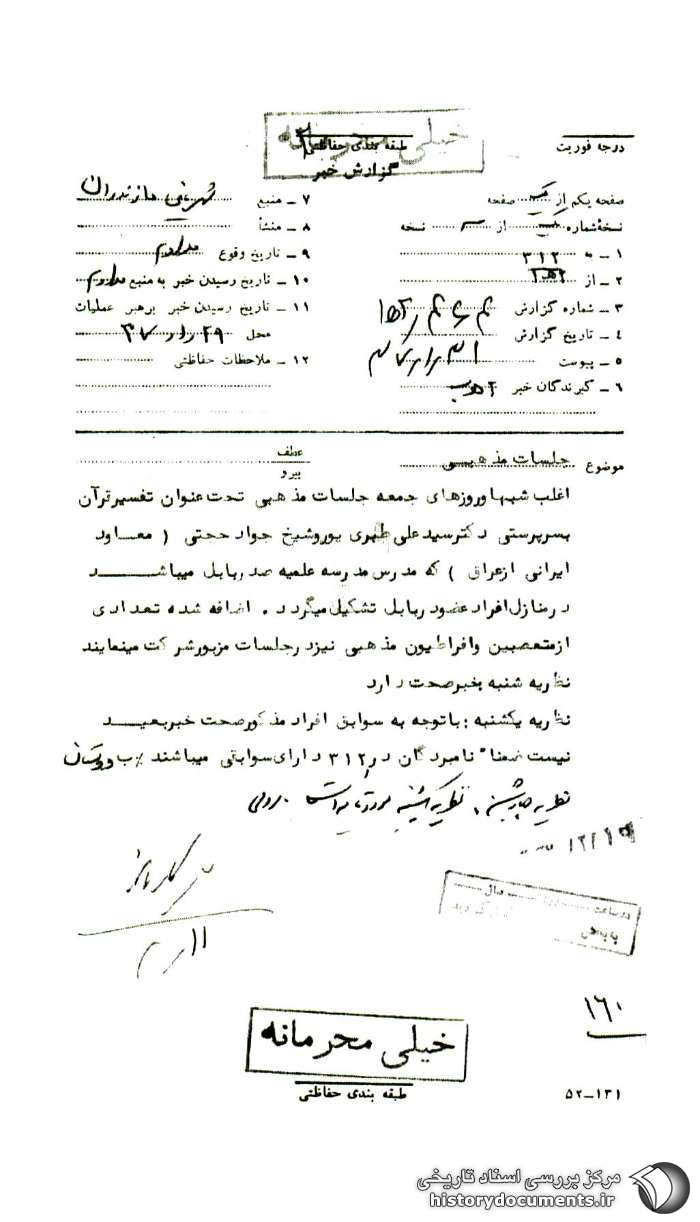 خیلی محرمانه
درجه فوریت
طبقه بندی حفاظتی
گزارش خبر
صفحه یکم از یک صفحه
نسخهٔ شماره از نسخه
۱ – به ۳۱۲
۲ – از
۳ – شماره گزارش
۴ – تاریخ گزارش
۵ – پیوست
۶ – گیرندگان خبر
۷ – منبع شهربانی مازندران
۸ – منشأ
۹ – تاریخ وقوع مداوم
۱۰ – تاریخ رسیدن خبر به منبع مداوم
۱۱ – تاریخ رسیدن خبر برهبر عملیات
محل
۱۲ – ملاحظات حفاظتی
موضوع جلسات مذهبی
عطف
پیرو
اغلب شبها و روزهای جمعه جلسات مذهبی تحت عنوان تفسیر قرآن
بسرپرستی دکتر سید علی طهری پور و شیخ جواد حجتی ( معاود
ایرانی از عراق ) که مدرس مدرسه علمیه صدر بابل میباشد
در منازل افراد عضو در بابل تشکیل میگردد . اضافه شده تعدادی
از متعصبین و افراطیون مذهبی نیز در جلسات مزبور شرکت مینمایند
نظریه شنبه بخبر صحت دارد
نظریه یکشنبه : با توجه به سوابق افراد مذکور صحت خبر بعید
نیست ضمنا" نامبردگان در ۳۱۲ دارای سوابقی میباشند
نظریه نظریه یکشنبه مورد تأیید است
در ساعت روز سال
بایگانی
۱۶۰
خیلی محرمانه
طبقه بندی حفاظتی
۵۲–۱۳۱
مرکز بررسی اسناد تاریخی
historydocuments.ir